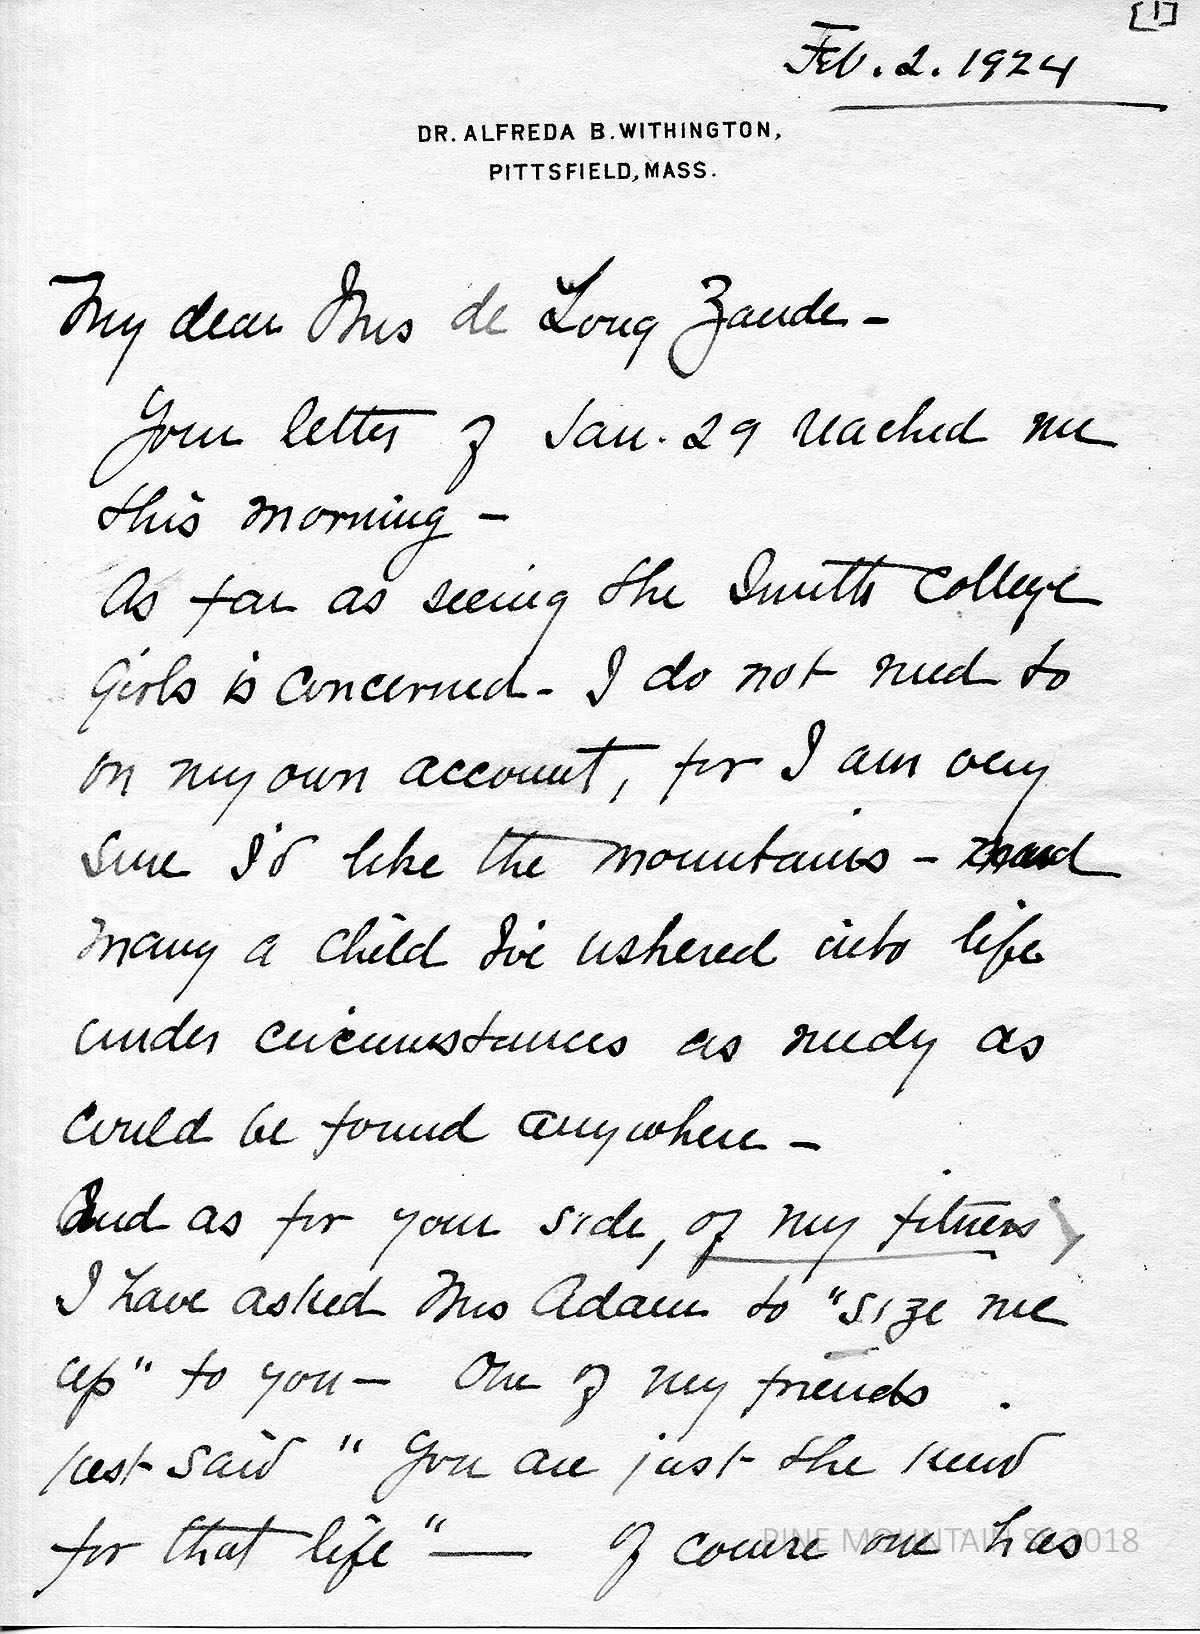 [1]
Feb. 2. 1924
DR. ALFREDA B. WITHINGTON,
PITTSFIELD, MASS.
My dear Mrs de Long Zande –
Your letter of Jan. 29 reached me
this morning –
As far as seeing the Smith College
Girls is concerned – I do not need to
on my own account, for I am very
sure I'd like the mountains – and
many a child I've ushered into life
under circumstances as needy as
could be found anywhere –
And as for your side, of my fitness,
I have asked Mrs Adam to "size me
up" to you – One of my friends
just said "You are just the kind
for that life" — Of course one has
PINE MOUNTAIN SS 2018